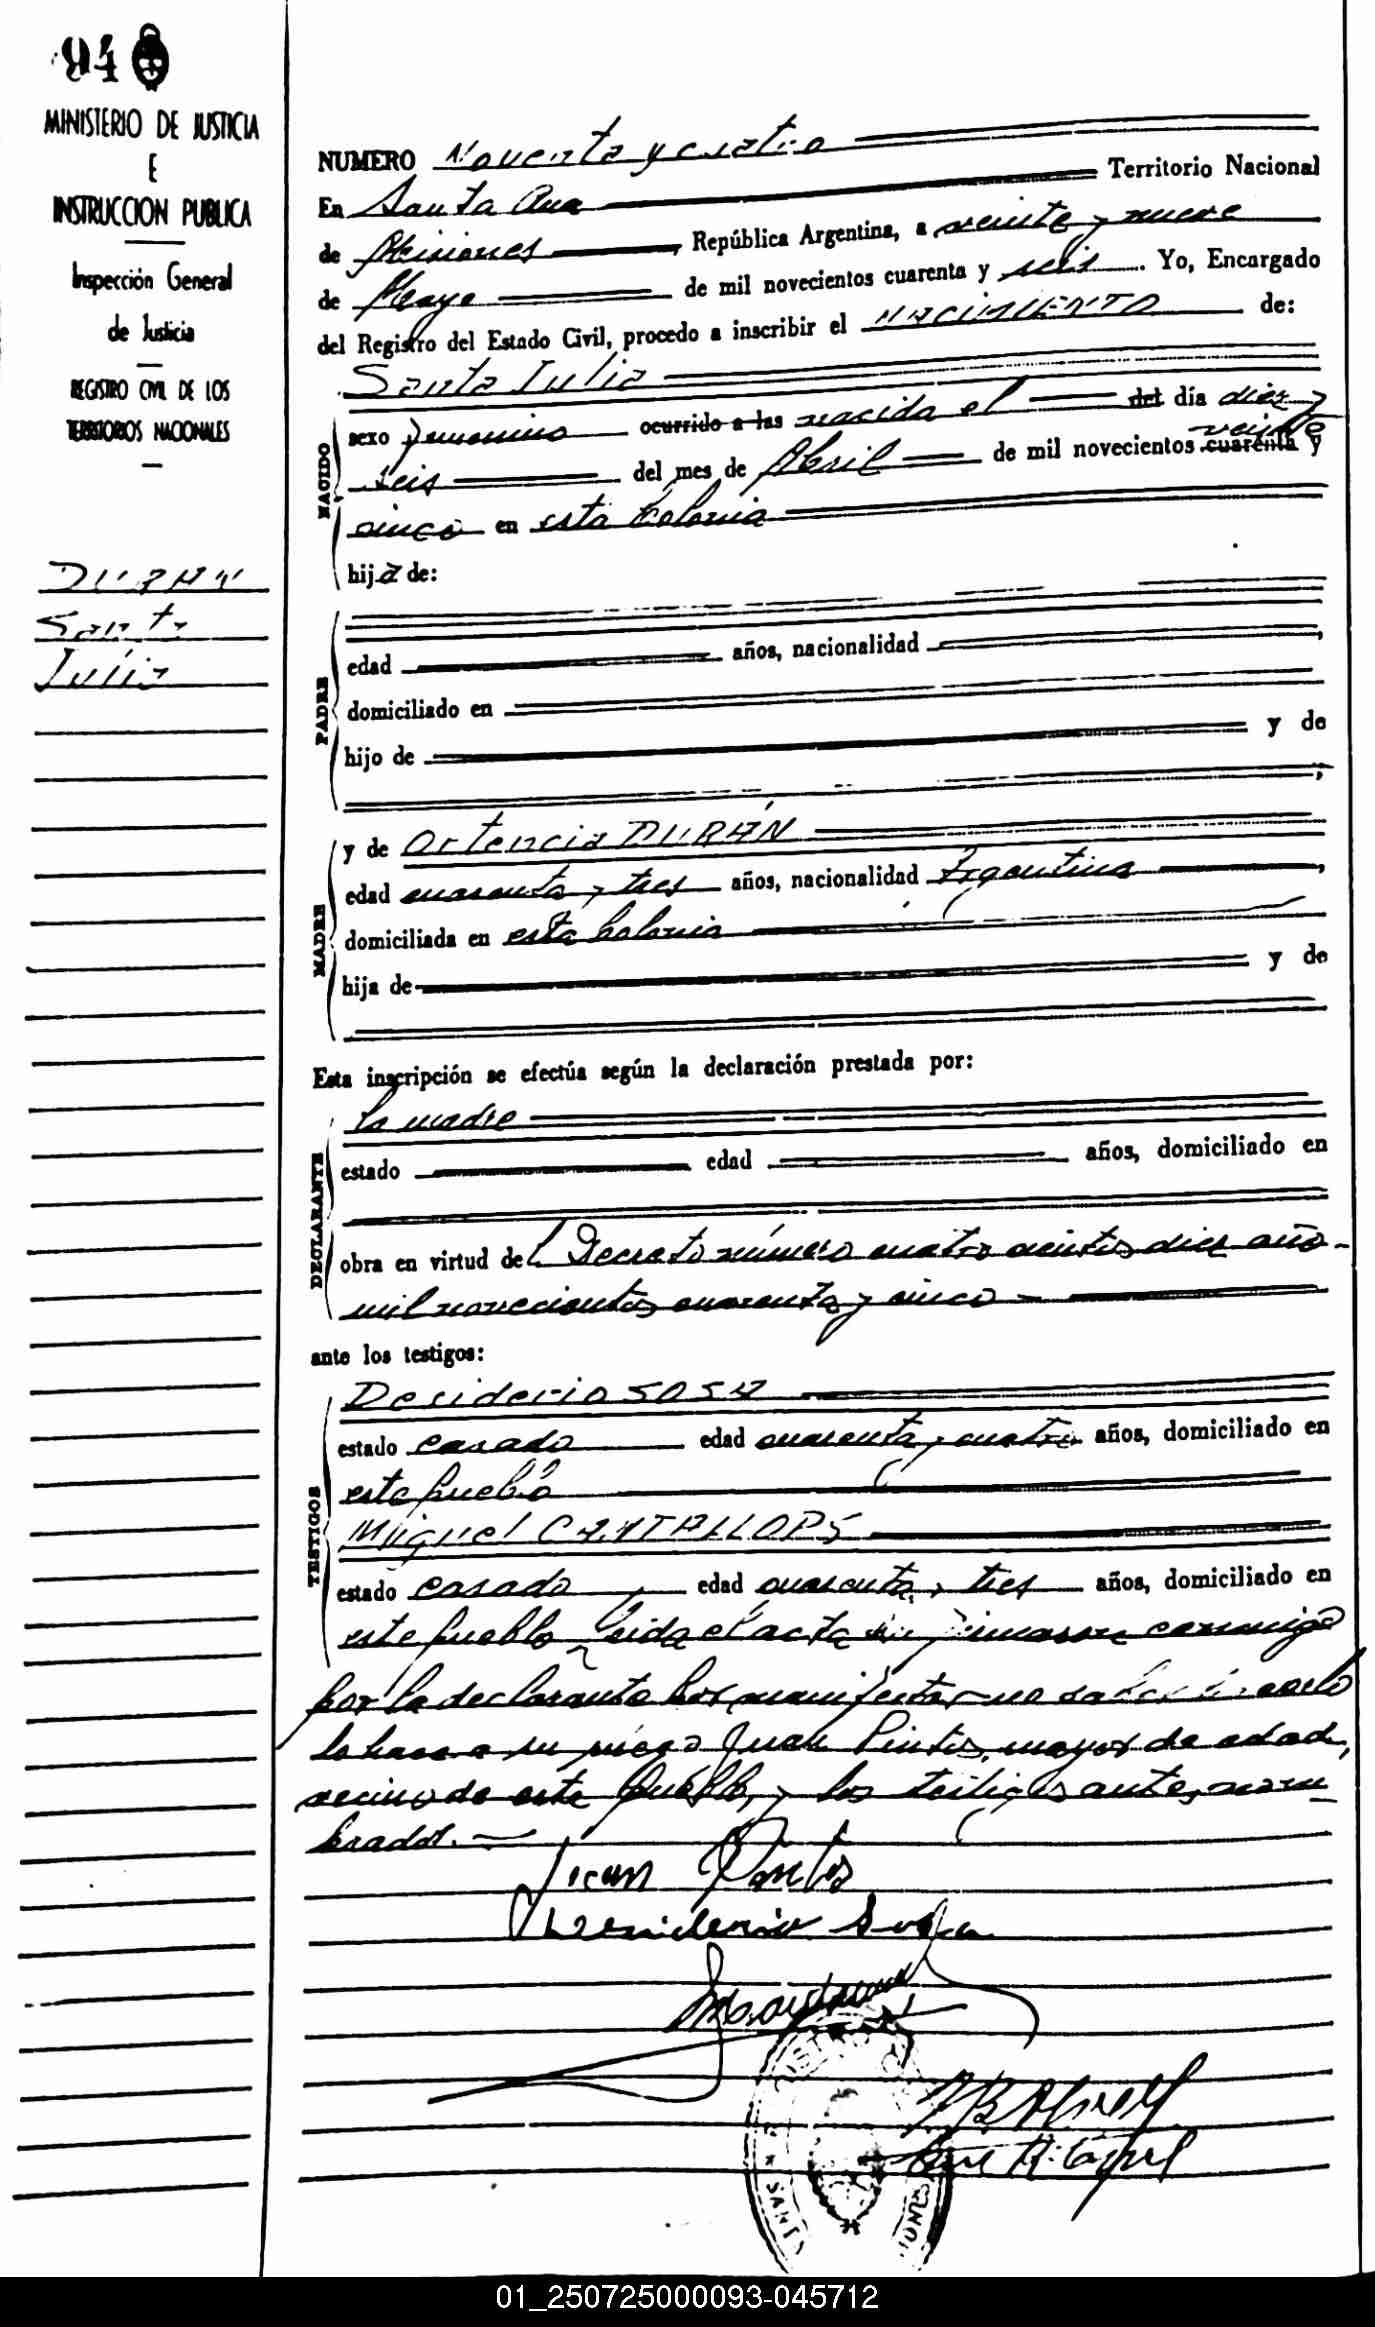 94
MINISTERIO DE JUSTICIA
E
INSTRUCCION PUBLICA
Inspección General
de Justicia
REGISTRO CIVIL DE LOS
TERRITORIOS NACIONALES
DURAN
Santa
Julia
NUMERO Noventa y cuatro
En Santa Ana Territorio Nacional
de Misiones, República Argentina, a veinte y nueve
de Mayo de mil novecientos cuarenta y seis. Yo, Encargado
del Registro del Estado Civil, procedo a inscribir el NACIMIENTO de:
Santa Julia
NACIDO
sexo femenino ocurrido a las nacida el del día diez y
seis del mes de Abril de mil novecientos cuarenta veinte y
cinco en esta Colonia
hija de:
PADRE
edad años, nacionalidad ,
domiciliado en
hijo de y de
;
MADRE
y de Ortencia DURÁN
edad cuarenta y tres años, nacionalidad Argentina ,
domiciliada en esta Colonia
hija de y de
Esta inscripción se efectúa según la declaración prestada por:
DECLARANTE
la madre
estado edad años, domiciliado en
obra en virtud del Decreto número cuatro cientos diez año
mil novecientos cuarenta y cinco
ante los testigos:
TESTIGOS
Desiderio SOSA
estado casado edad cuarenta y cuatro años, domiciliado en
este pueblo
Miguel CANTALLOPS
estado casado edad cuarenta y tres años, domiciliado en
este pueblo leida el acta la firmaron conmigo
por la declarante por manifestar no saber hacerlo
lo hace a su ruego Juan Pintos, mayor de edad,
vecino de este pueblo, y los testigos antes nom-
brados.
Juan Pintos
Desiderio Sosa
SANT
IONES
01_250725000093-045712